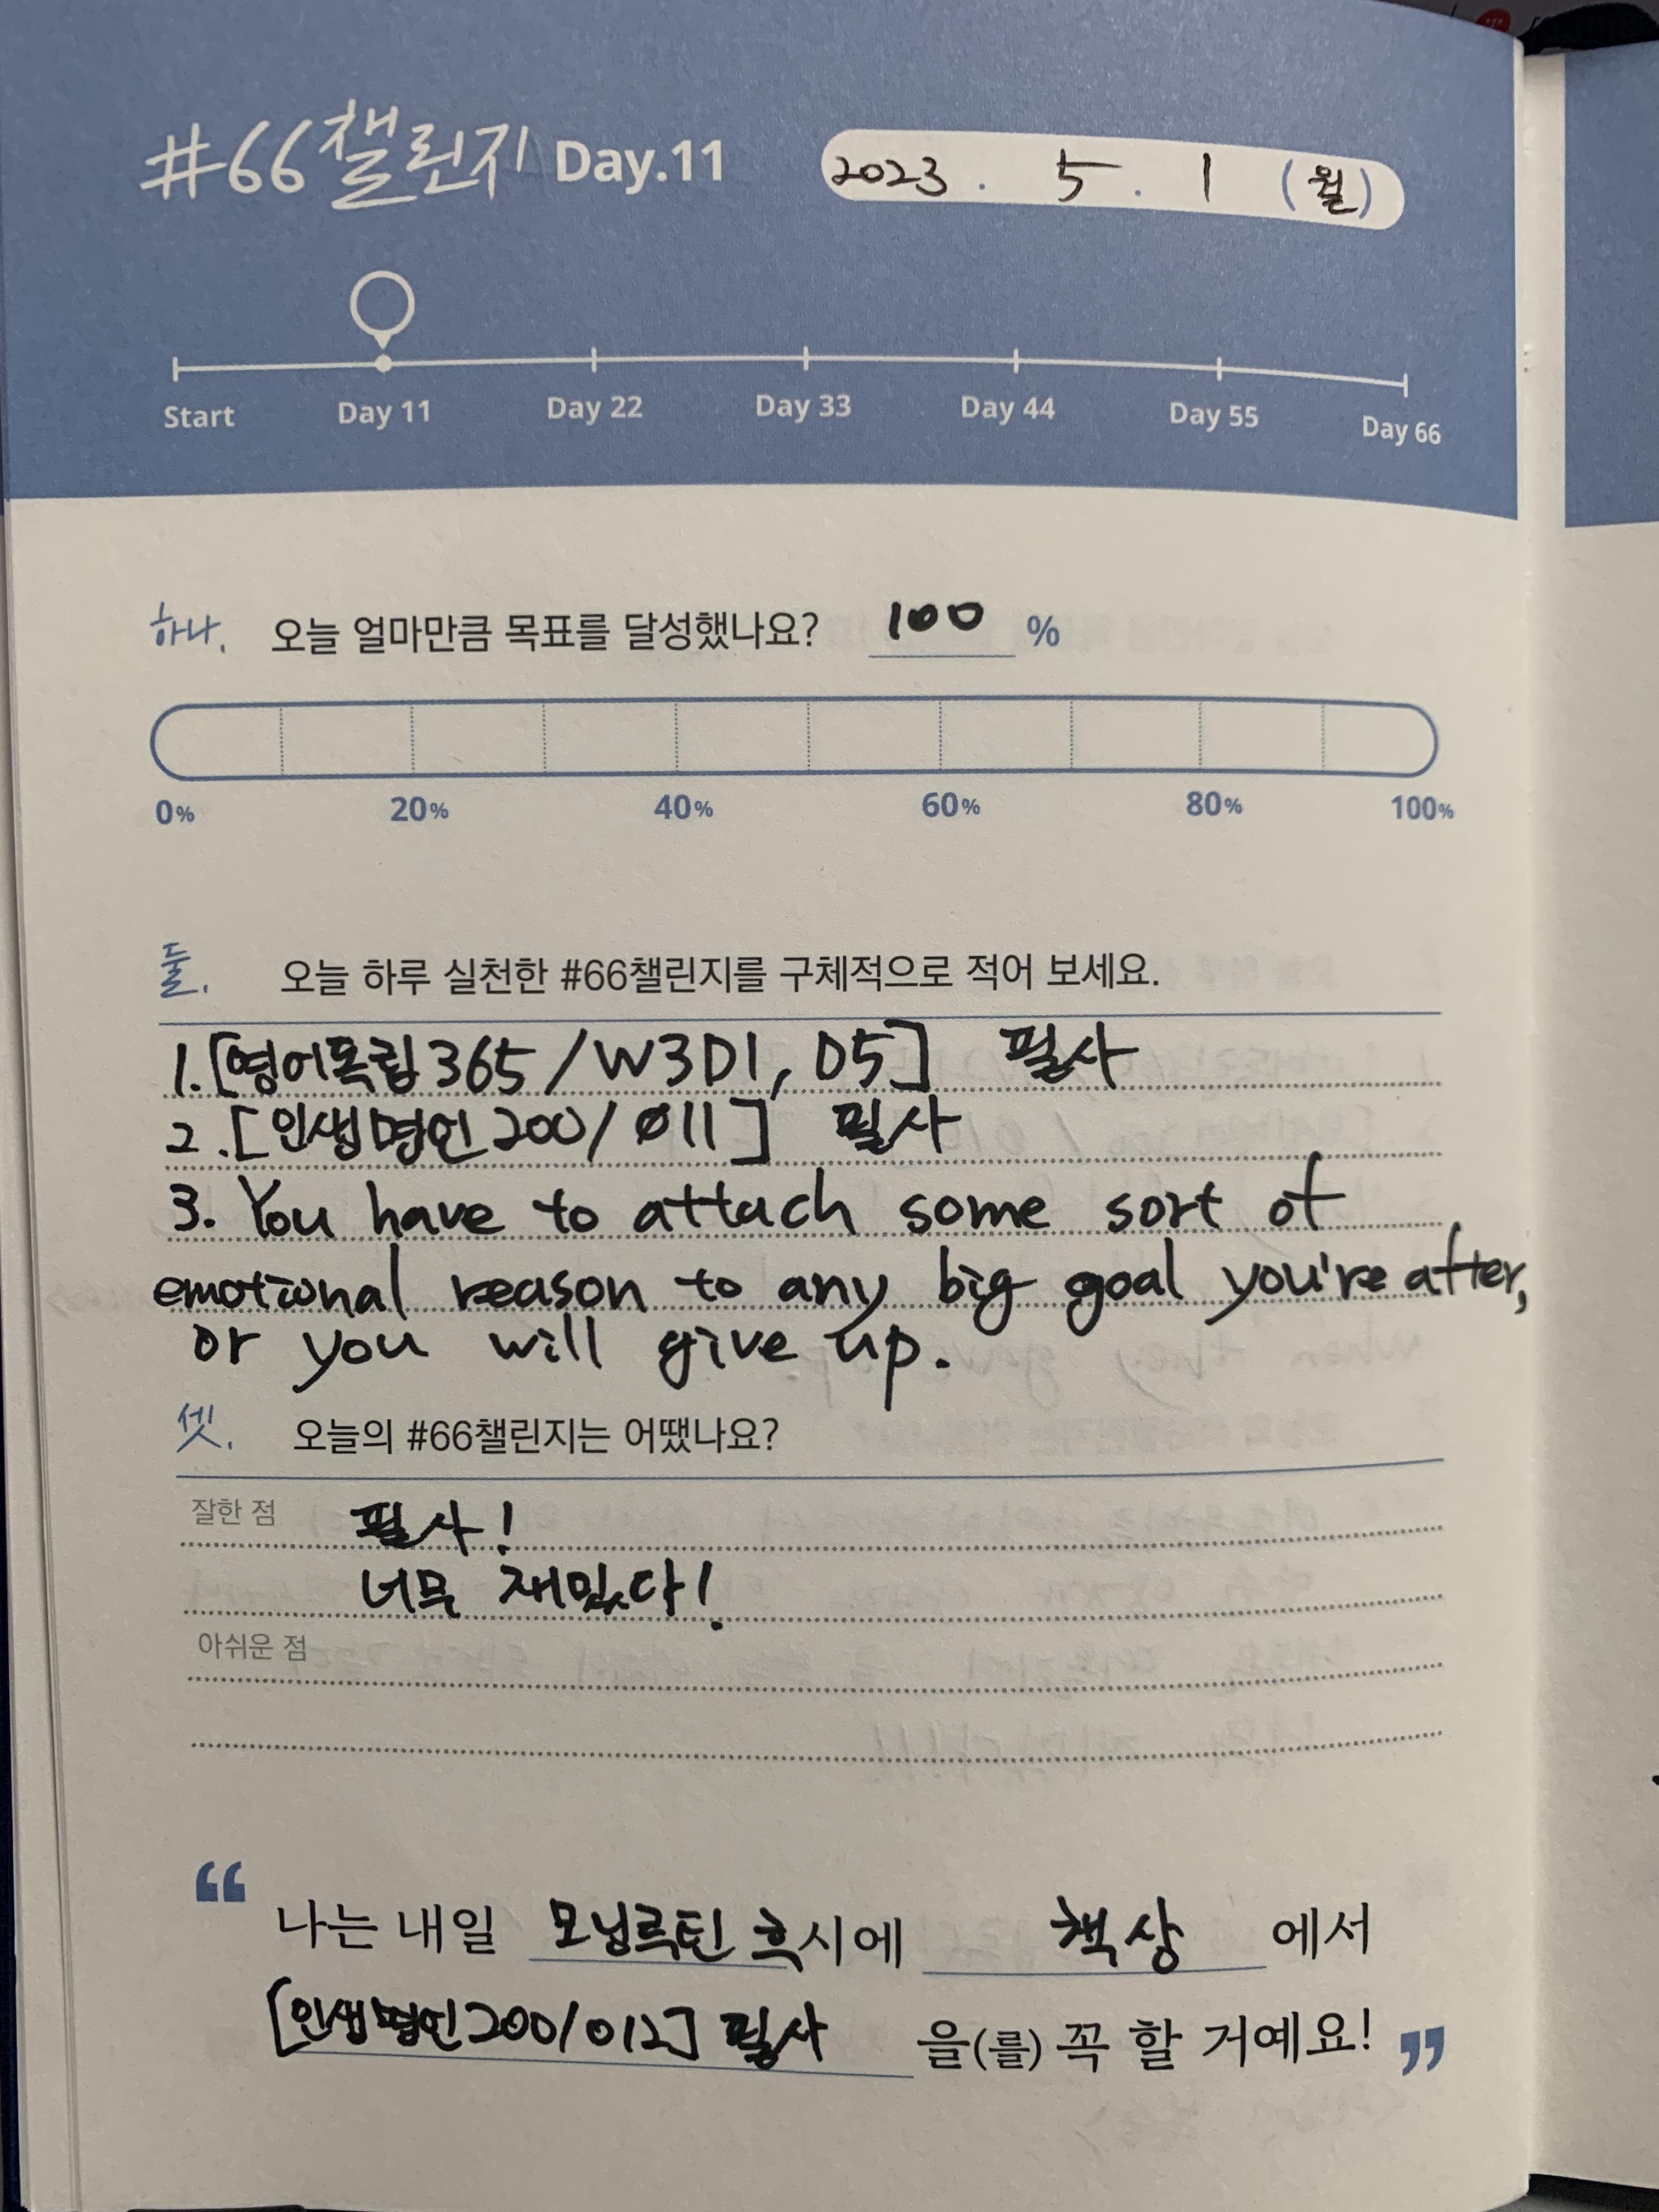 #66챌린지 Day.11 2023. 5. 1 (월)
Start Day 11 Day 22 Day 33 Day 44 Day 55 Day 66
하나. 오늘 얼마만큼 목표를 달성했나요? 100 %
0% 20% 40% 60% 80% 100%
둘. 오늘 하루 실천한 #66챌린지를 구체적으로 적어 보세요.
1. [영어독립365/W3D1, D5] 필사
2. [인생명언200/011] 필사
3. You have to attach some sort of
emotional reason to any big goal you're after,
or you will give up.
셋. 오늘의 #66챌린지는 어땠나요?
잘한 점 필사!
너무 재밌다!
아쉬운 점
“ 나는 내일 모닝루틴 흑시에 책상 에서
[인생명언200/012] 필사 을(를) 꼭 할 거예요! ”